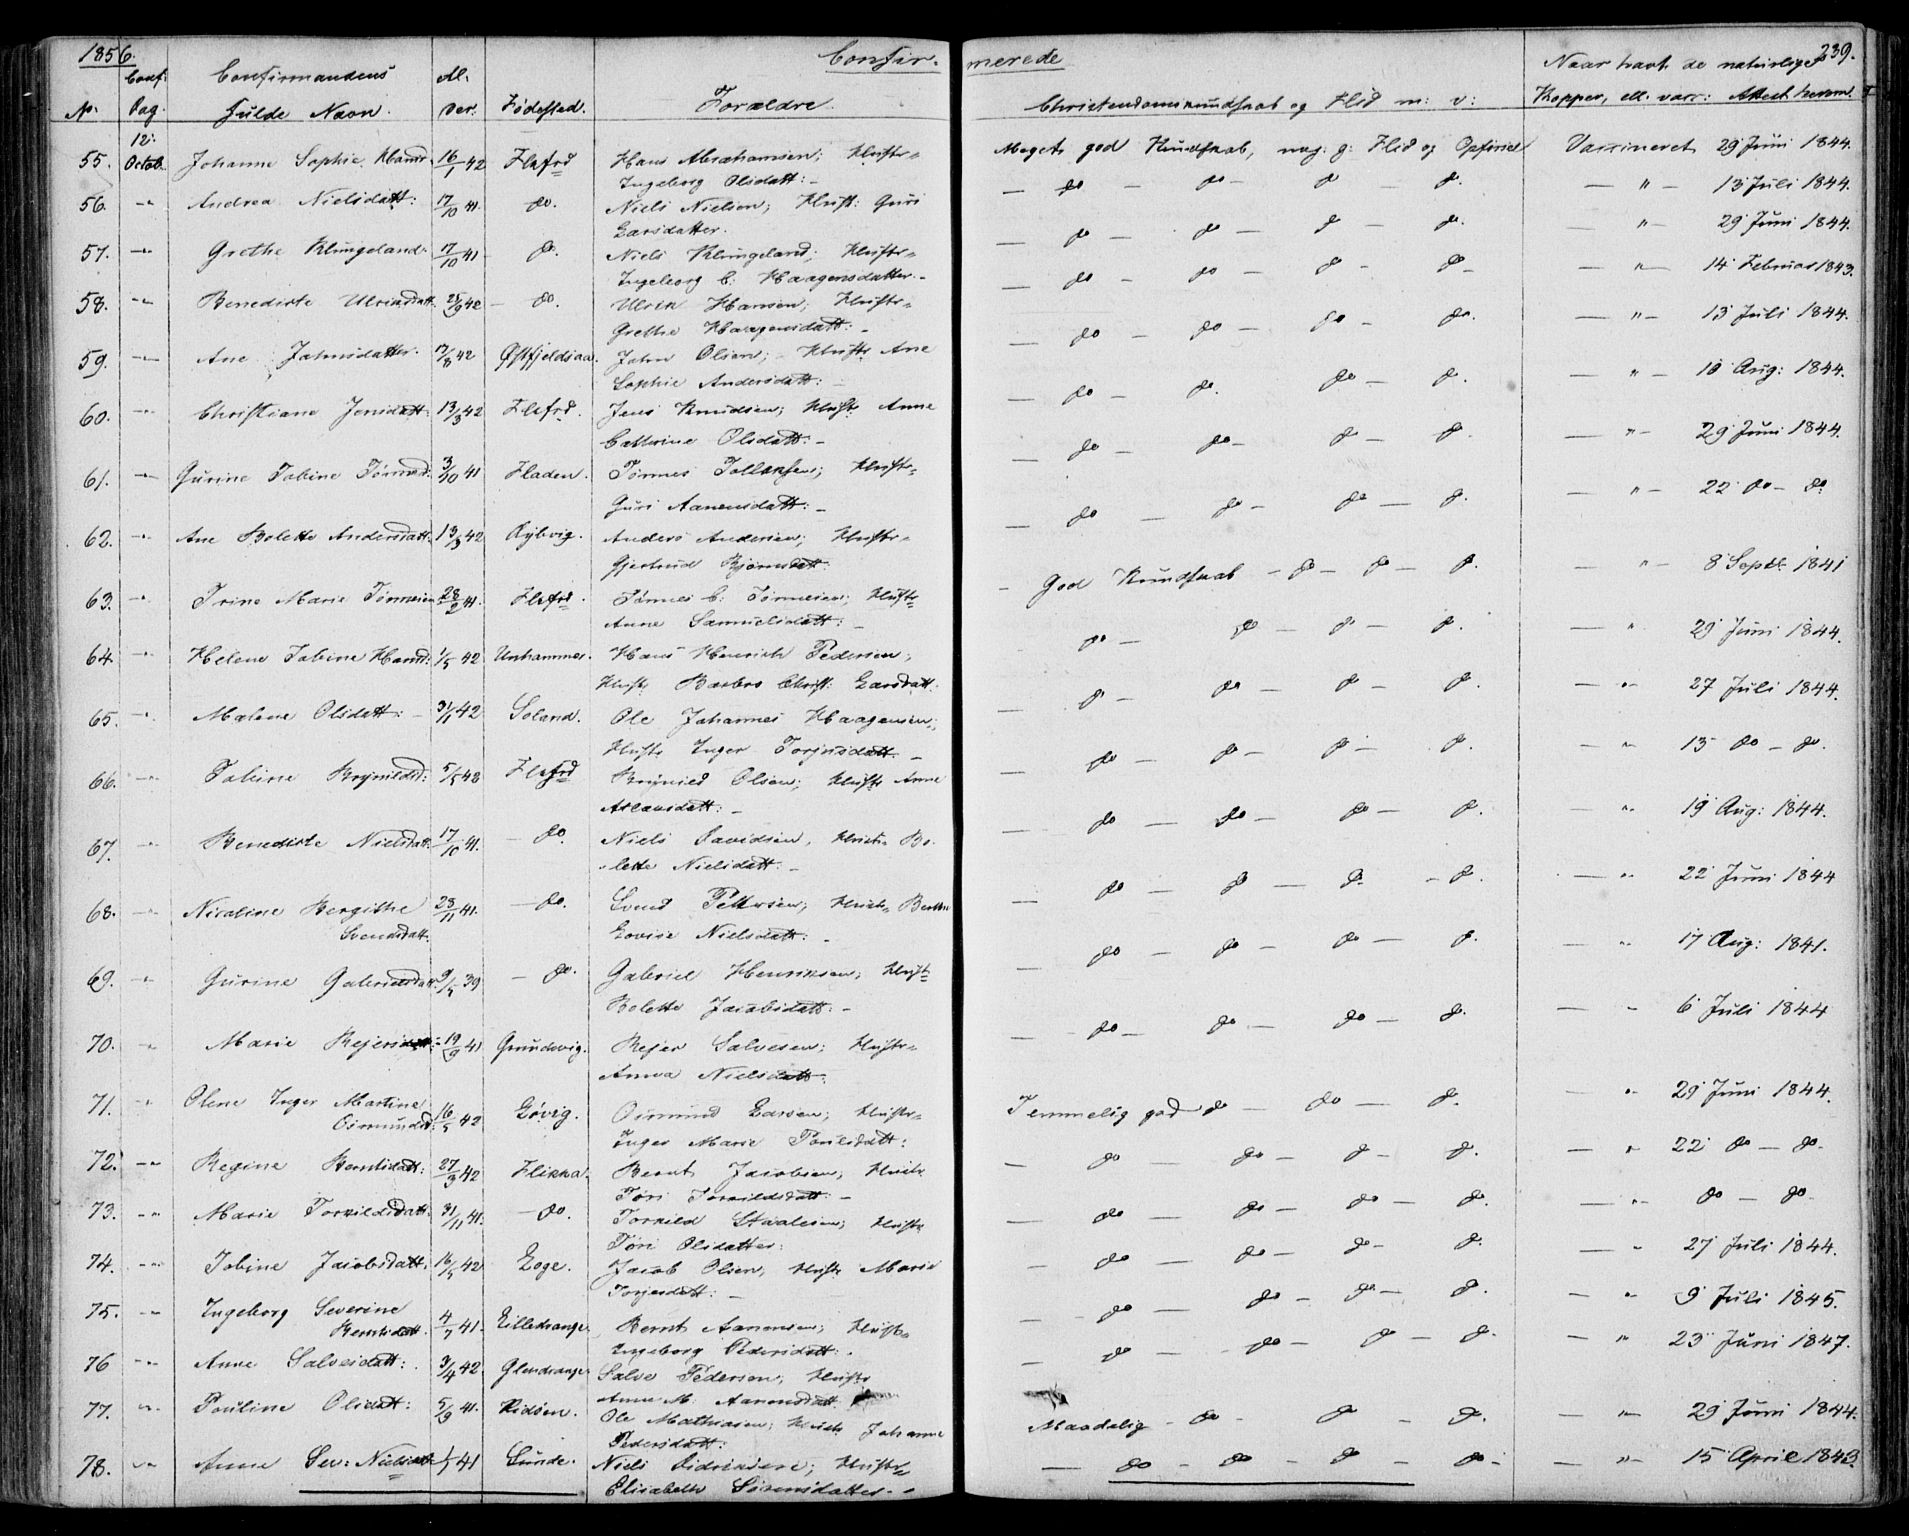 1856. Confirmerede 239.
No. Conf: Dag. Confirmandens fulde Navn. Alder. Fødested. Forældre. Christendomskundskab og Flid m: v: Naar havt de naturlige Kopper, ell. vacc: Attest herom.
12:
55. Octob. Johanne Sophie Hansd: 16/1 42 Flefrd Hans Abrahamsen; Hustr= Meget god Kundskab, meg: g: Flid og Opførsel Vaccineret 29 Juni 1844.
Ingeborg Olsdatt: -
56. -"- Andrea Nielsdatt: 17/10 41. do. Niels Nielsen; Hustr: Guri — do — do — d — d. — " — 13 Juli 1844.
Larsdatter.
57. -"- Grethe Klungeland. 17/10 41 — do. Niels Klungeland; Hustr= — do — do — d — do. — " — 29 Juni 1844.
Ingeborg C: Haagensdatter. -
58. -"- Benedicte Ulriksdatt. 25/9 42 — do. Ulrik Hansen; Hustr= — do — do — d — do — — " — 14 Februar 1843.
Grethe Haagensdatt: -
59. -"- Ane Jahnsdatter. 17/8 42 Østfjeldsaa. Jahn Olsen; Hustr Ane — do — do — do — do. — " — 13 Juli 1844.
Sophie Andersdatt: -
60. -"- Christiane Jensdatt: 13/3 42 Flefrd. Jens Knudsen; Hustr Anne — do — do. do — d. — " — 10 Aug: 1844.
Cathrine Olsdatt: -
61. -"- Gurine Tobine Tønnesd: 3/10 41 Fladen. Tønnes Tollaksen; Hustr= — do — do — do — d. — " — 29 Juni 1844.
Guri Aanensdatt: -
62. -"- Ane Bolette Andersdatt. 13/3 42 Rybvig. Anders Andersen; Hustr= — do — do — do — d. — " — 22 do — do:
Gjertrud Bjørnsdatt:
63. -"- Trine Marie Tønnesen 28/2 41. Flefrd. Tønnes C: Tønnesen; Hustr= — God Kundskab — do — do — d. — " — 8 Septr 1841
Anne Samuelsdatt: -
64. -"- Helene Tobine Hansd: 1/5 42 Unhammer. Hans Henrich Pedersen; do — do — do — d. — " 29 Juni 1844.
Hustr Barbro Christ: Larsdatt.
65. -"- Malene Olsdatt: - 31/1 42 Soland. Ole Johannes Haagensen; — do — do — d — d. — " 27 Juli 1844.
Hustr Inger Torjusdatt. -
66. -"- Tobine Brynildsd: 5/5 42 Flefrd Brynild Olsen; Hustr Anne — do — do — do — d. — " 13 do — do.
Aslaksdatt: -
67. -"- Benedicte Nielsdatt. 17/10 41. — do. Niels Davidsen, Hustr= Bo- — do — do — do — d. — " 19 Aug: 1844.
lette Nielsdatt: -
68. -"- Nicoline Bergithe 23/11 41. — do. Svend Pettersen; Hustr= Berthe — do — do — do — d. — " 22 Juni 1844
Svendsdatt. Lovise Nielsdatt: -
69. -"- Gurine Gabrielsdatt. 9/4 39 — do. Gabriel Henriksen; Hustr= — do — do — do — d. — " 17 Aug: 1841.
Bolette Jacobsdatt: -
70. -"- Marie Rejersdatt: 19/9 41 Grundevig. Rejer Salvesen; Hustr= — do — do — do — d. — " 6 Juli 1844
Anna Nielsdatt:
71. -"- Olene Inger Martine Osmundsd: 16/5 42 Løvig. Osmund Larsen; Hustr= Temmelig god do — do — d. — " 29 Juni 1844.
Inger Marie Poulsdatt:
72. -"- Regine Berntsdatt: 27/3 42 Flikka. Bernt Jacobsen, Hustr — do — do — d — d. — " 22 do — do.
Tøri Torkildsdatt: -
73. -"- Marie Torkildsdatt: 31/11 41. — do. Torkild Staalesen; Hustr — do — do — do — d. — " do — do
Tøri Olsdatter:
74. -"- Tobine Jacobsdatt: 16/5 42 Loge. Jacob Olsen, Hustr Marie — do — do — do — d. — " 27 Juli 1844.
Torjesdatt: -
75. -"- Ingeborg Severine 4/7 41. Eilledrange. Bernt Aanensen; Hustr= — do — do — do — d. — " 9 Juli 1845.
Berntsdatt. Ingeborg Pedersdatt:
76 -"- Anne Salvesdatt: 3/4 42. Glendrange. Salve Pedersen; Hustr — do — do — d — d. — " 23 Juni 1847.
Anne M: Aanensdatt
77. -"- Pouline Olsdatt: 5/9 41. Hidøen. Ole Mathiasen; Hustr Johanne Maadelig — do — d — d. — " — 29 Juni 1844.
Pedersdatt:
78. -"- Anne Sev: Nielsdatt 41 Lunde. Niels Didriksen; Hustr= — do — do — d — do — — " — 15 April 1843.
Elisabeth Sørensdatter. -